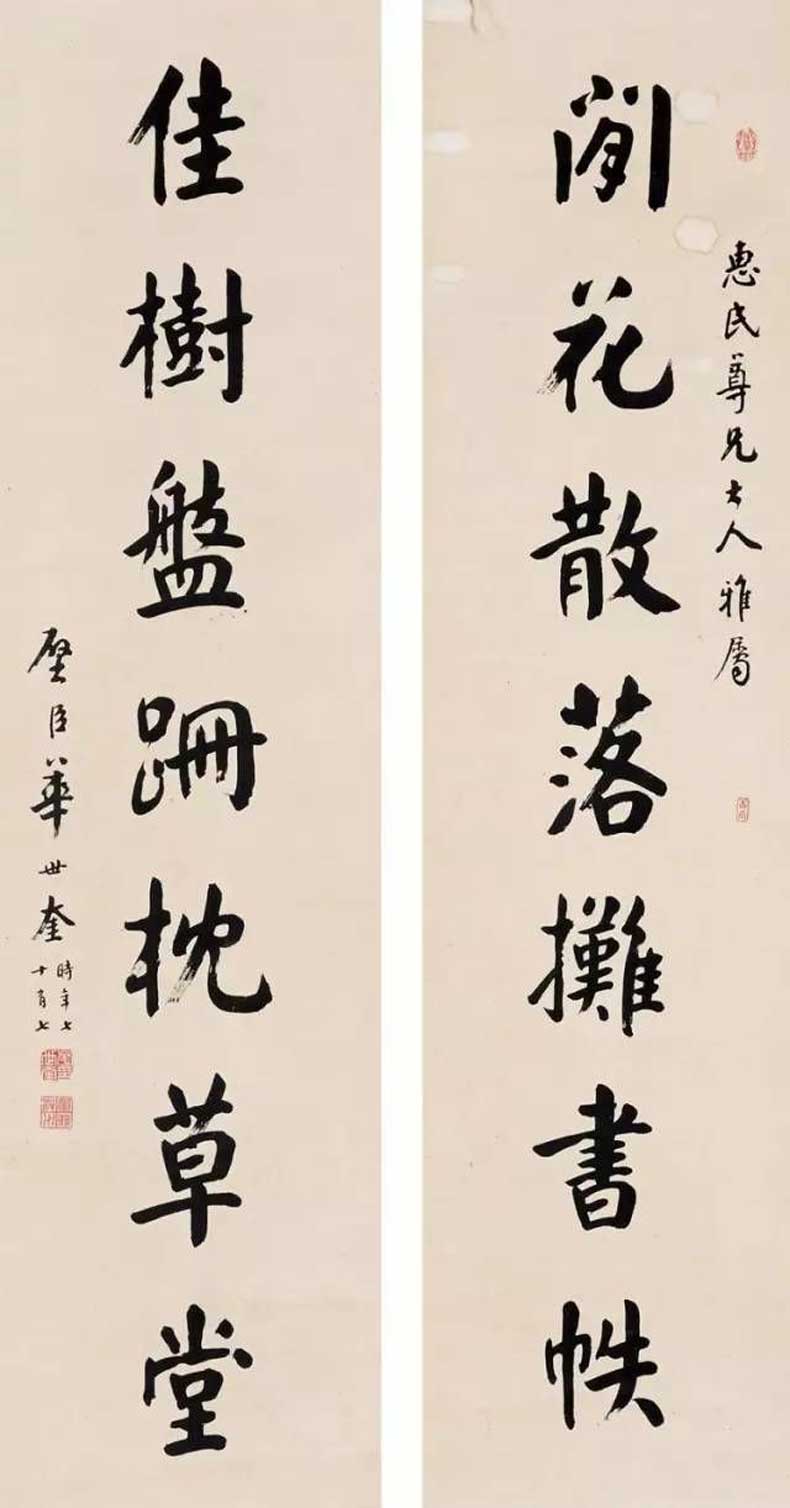 惠民尊兄大人雅屬
閒花散落攤書帙
佳樹盤跚枕草堂
璧臣華世奎
時年七
十有七